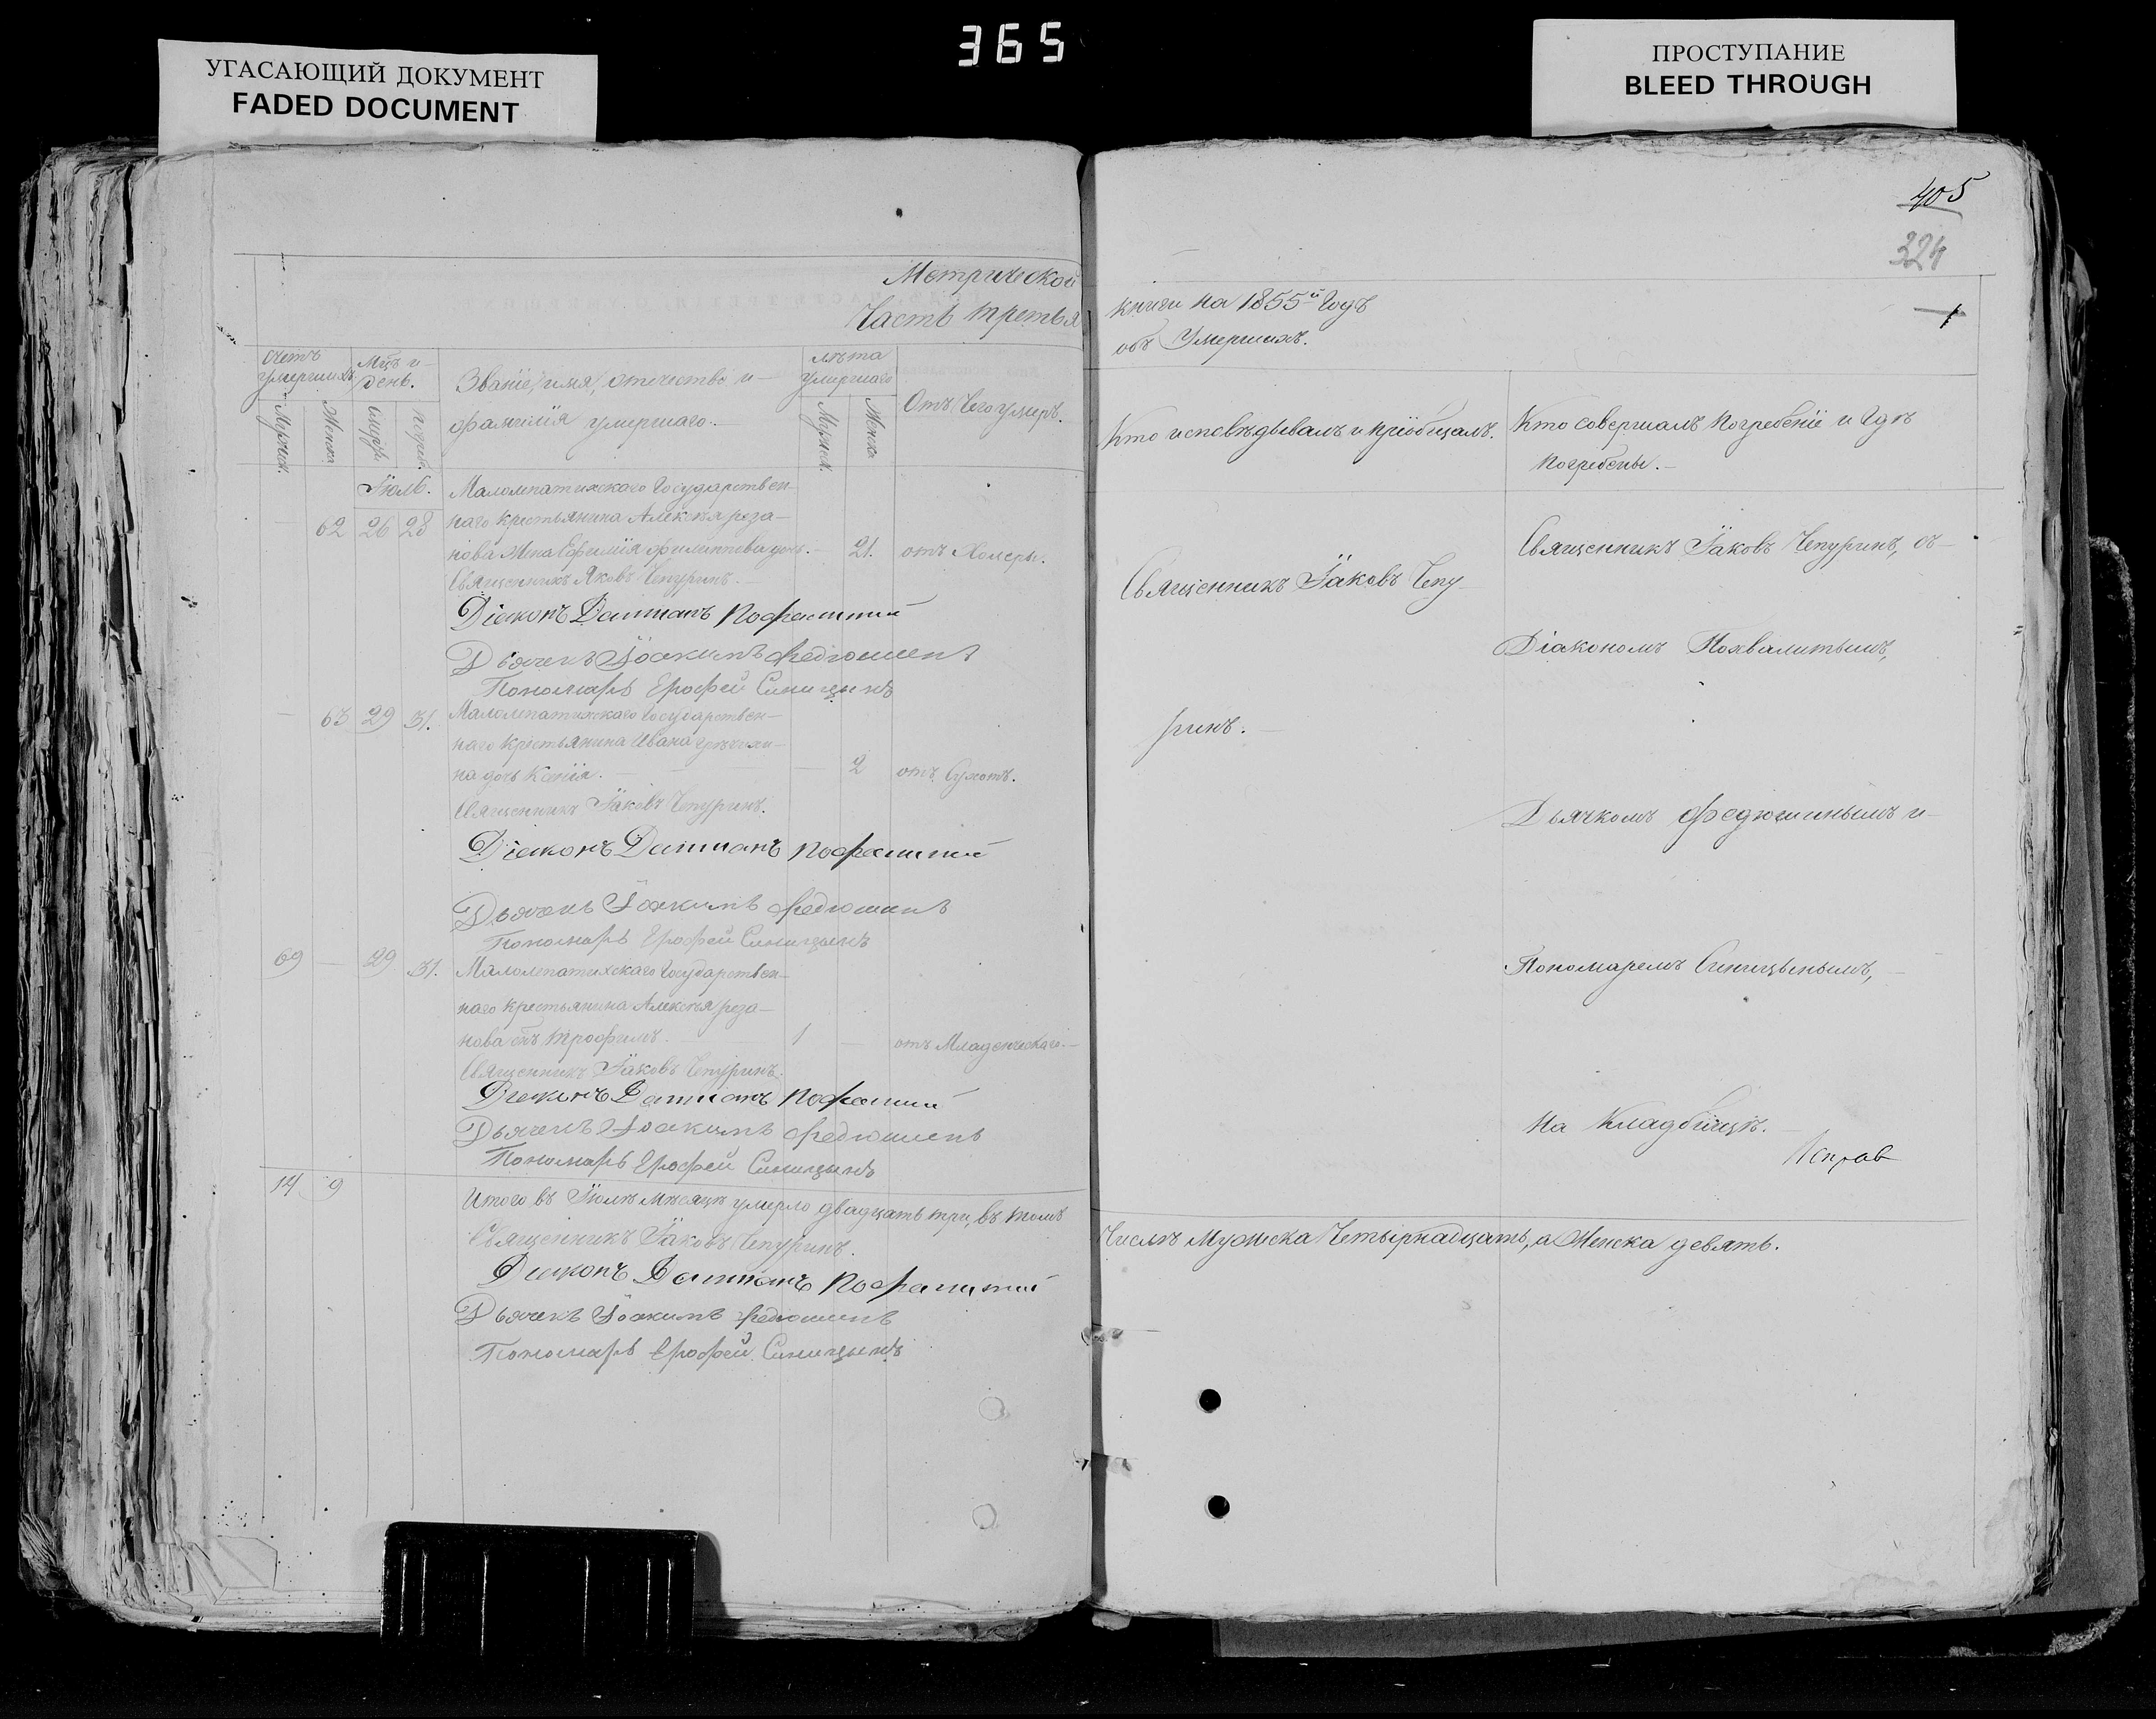 365
УГАСАЮЩИЙ ДОКУМЕНТ
FADED DOCUMENT
ПРОСТУПАНИЕ
BLEED THROUGH
405
324
Метрической
Часть третья
книги на 1855й Годъ
объ Умершихъ.
Счетъ умершихъ
Мужеск.
Женска
Мцъ и день.
Смерти
Погреб.
Званіе, имя, отчество и
фамилія умершаго.
лѣта умершаго
Мужеск.
Женска
Отъ Чего умеръ.
Кто исповѣдывалъ и пріобщалъ.
Кто совершалъ Погребеніе и Гдѣ
Погребены.
Іюль.
Маломпатихскаго Государствен-
62 26 28 наго крестьянина Алексѣя реза-
нова жена Ефимія филиппова дочь. 21. отъ Холеры.
Священникъ Яковъ Чепуринъ.
Діаконъ Даміанъ
Дьячекъ Іоакимъ Федюшинъ
Пономарь Ерофей Синицынъ
Государствен-
63 29 31. наго крестьянина Ивана
на дочь Ксенія. 2 отъ Сухотъ.
Священникъ Іаковъ Чепуринъ.
Діаконъ Даміанъ
Дьячекъ Іоакимъ Федюшинъ
Пономарь Ерофей Синицынъ
69 — 29 31. Государствен-
наго крестьянина Алексѣя реза-
нова сынъ трофимъ. 1 — отъ Младенческаго.
Священникъ Іаковъ Чепуринъ.
Діаконъ Даміанъ
Дьячекъ Іоакимъ Федюшинъ
Пономарь Ерофей Синицынъ
14 9 Итого въ Іюлѣ мѣсяцѣ умерло двадцать три, въ томъ
Священникъ Іаковъ Чепуринъ.
Діаконъ Даміанъ
Дьячекъ Іоакимъ Федюшинъ
Пономарь Ерофей Синицынъ
Священникъ Іаковъ Чепу-
ринъ.
Священникъ Іаковъ Чепуринъ, съ
Діакономъ Похвалитымъ,
Дьячкомъ Федюшинымъ и
Пономаремъ Синицынымъ,
на Кладбищѣ.
Числѣ Мужеска Четырнадцать, а Женска девять.